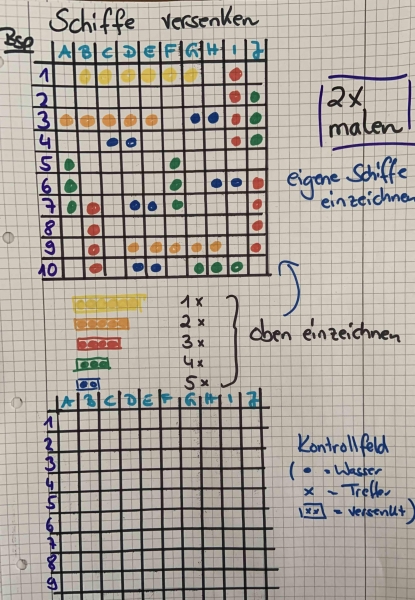 Schiffe versenken
Bsp
A B C D E F G H I J
1
2
3
4
5
6
7
8
9
10
2x
malen
eigene Schiffe
einzeichnen
1x
2x
3x
4x
5x
oben einzeichnen
A B C D E F G H I J
1
2
3
4
5
6
7
8
9
Kontrollfeld
( • = Wasser
x = Treffer
xx = versenkt)